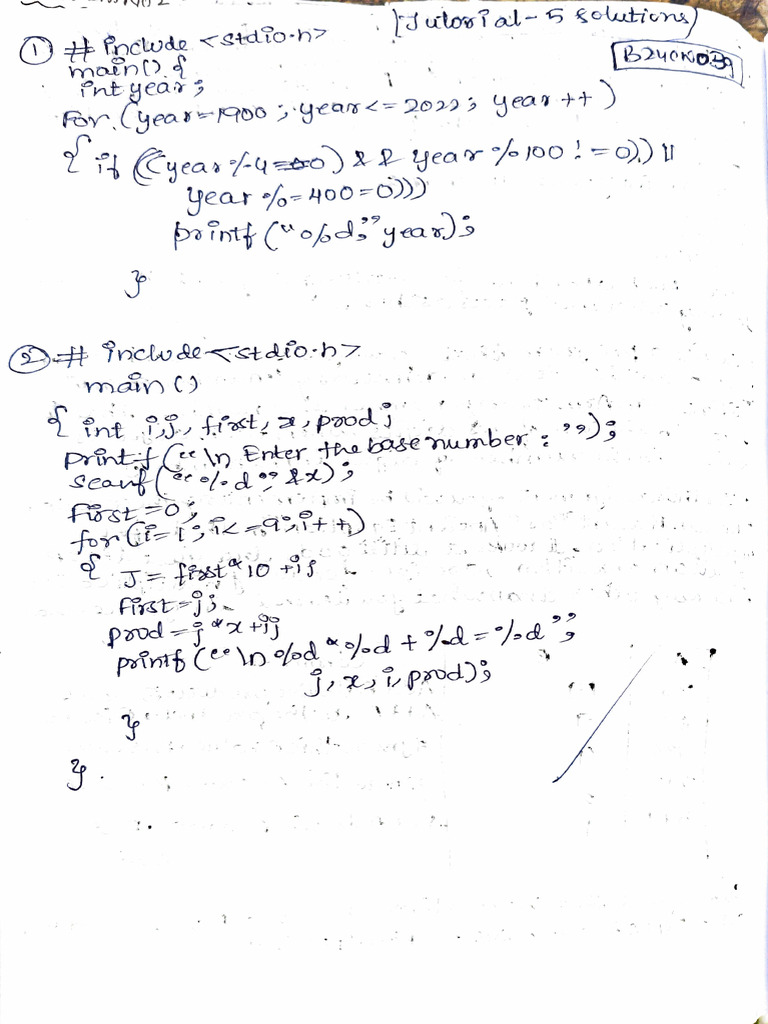 [Tutorial - 5 solutions]
B24CN039
① # include <stdio.h>
main() {
int year;
For (year=1900; year<=2022; year++)
{ if ((year%4==0) && year%100!=0)) ||
year%=400=0)))
printf("%d;" year);
}
② # include <stdio.h>
main()
{ int i,j, first, x, prod;
printf("\n Enter the base number: ");
scanf("%d", &x);
first=0;
for(i=1; i<=9; i++)
{ J = first*10 + i;
first=j;
prod=j*x+i;
printf("\n %d * %d + %d = %d";
j, x, i, prod);
}
}.